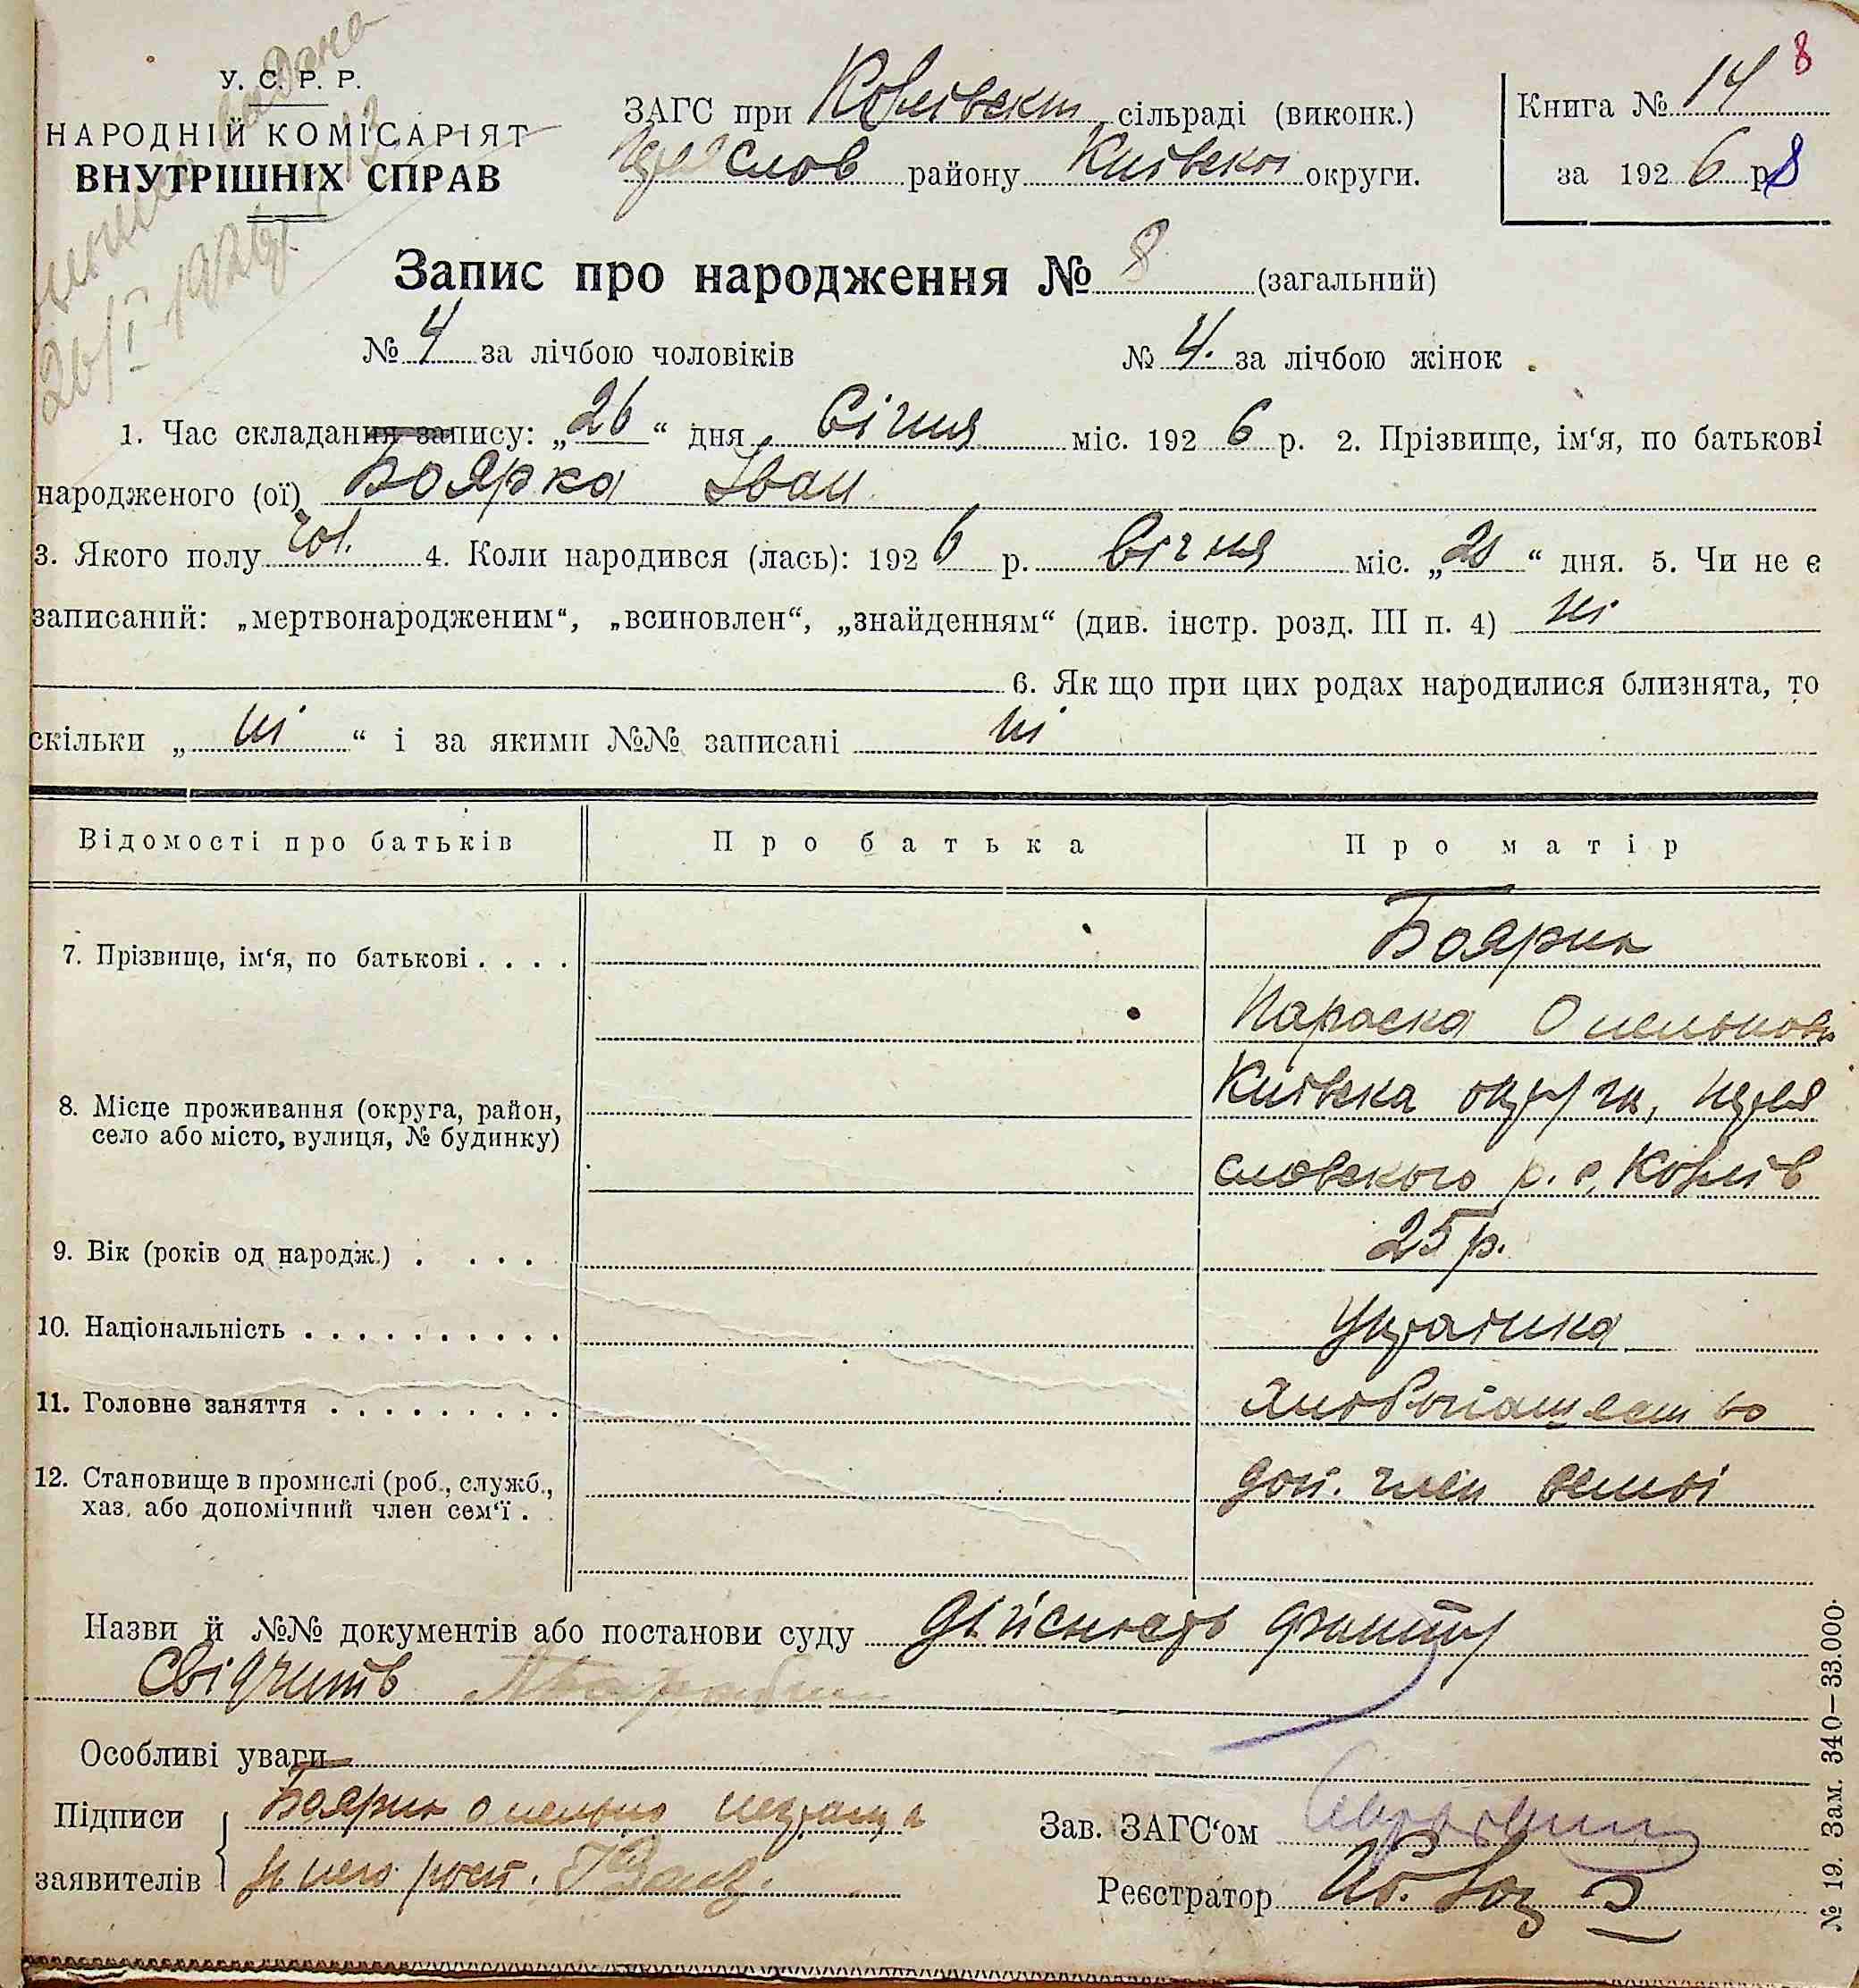 У. С. Р. Р.
НАРОДНІЙ КОМІСАРІЯТ
ВНУТРІШНІХ СПРАВ
26/I 1926 р.
ЗАГС при сільраді (виконк.)
району Київськ округи.
Книга № 14 8
за 192 6 р. 8
Запис про народження № 8 (загальний)
№ 4 за лічбою чоловіків № 4. за лічбою жінок
1. Час складання запису: „26“ дня Січня міс. 192 6 р. 2. Прізвище, ім‘я, по батькові
народженого (ої) Боярко Іван
3. Якого полу чол. 4. Коли народився (лась): 192 6 р. Січня міс. „ “ дня. 5. Чи не є
записаний: „мертвонародженим“, „всиновлен“, „знайденням“ (див. інстр. розд. III п. 4) ні
6. Як що при цих родах народилися близнята, то
скільки „ ні “ і за якими №№ записані ні
Відомості про батьків Про батька Про матір
7. Прізвище, ім‘я, по батькові . . . . Боярка
Параска Омельков
8. Місце проживання (округа, район,
село або місто, вулиця, № будинку)
Київска округа,
словского р. с.
9. Вік (років од народж.) . . . . . 25 р.
10. Національність . . . . . . . . . . . Українка
11. Головне заняття . . . . . . . . . .
12. Становище в промислі (роб., служб.,
хаз. або допомічний член сем‘ї . .
доп. член семьі
Назви й №№ документів або постанови суду дійсність факту
Свідчить
Особливі уваги
Підписи Боярка Омелько
заявителів
Зав. ЗАГС‘ом
Реєстратор
№ 19. Зам. 340—33.000.